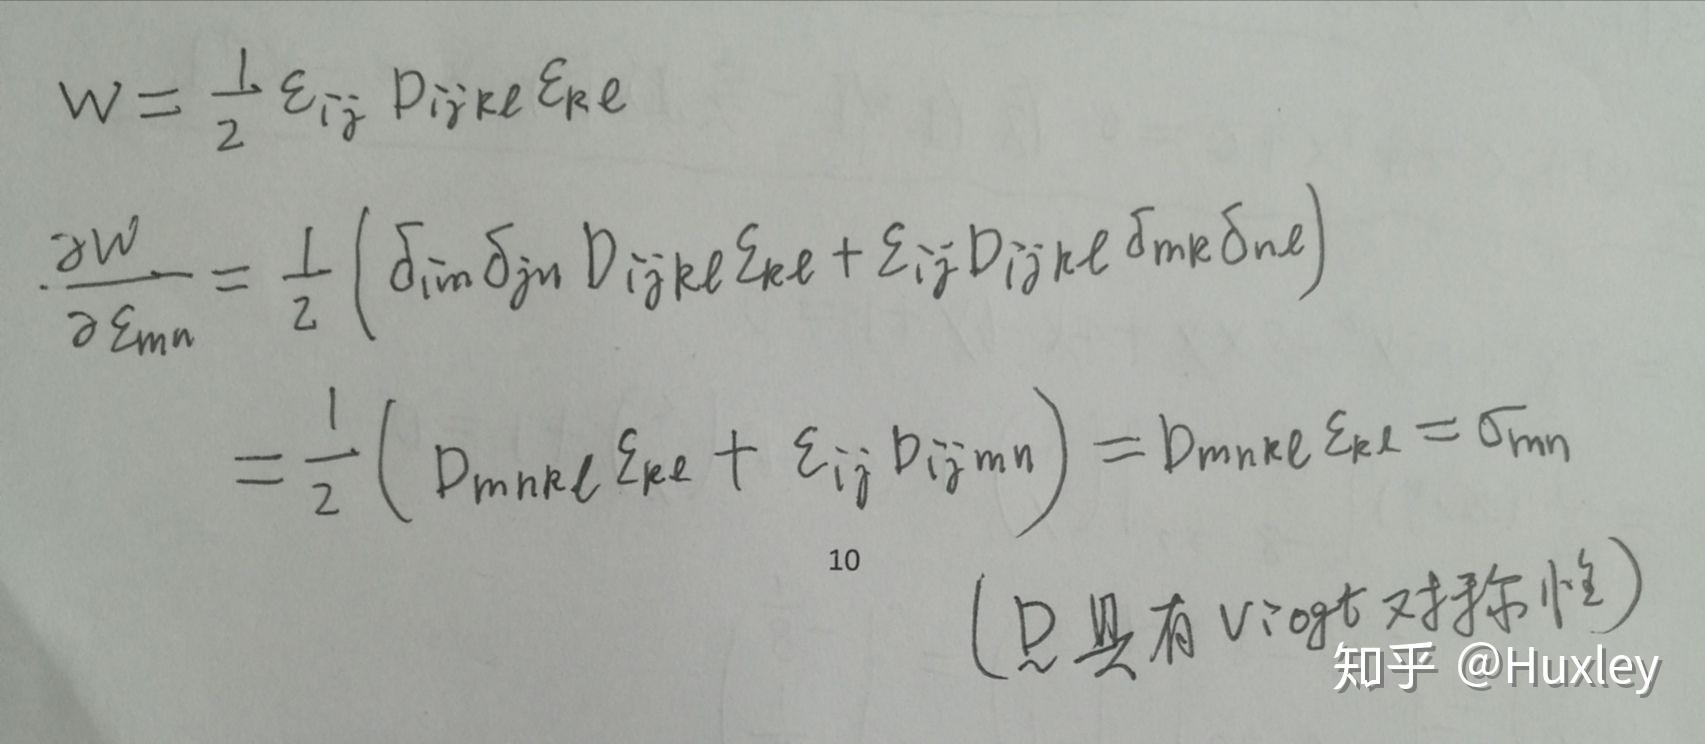 W = 1/2 ε_ij D_ijkl ε_kl
∂W/∂ε_mn = 1/2 ( δ_im δ_jn D_ijkl ε_kl + ε_ij D_ijkl δ_mk δ_nl )
= 1/2 ( D_mnkl ε_kl + ε_ij D_ijmn ) = D_mnkl ε_kl = σ_mn
10
( D 具有 Viogt 对称性 )
知乎 @Huxley